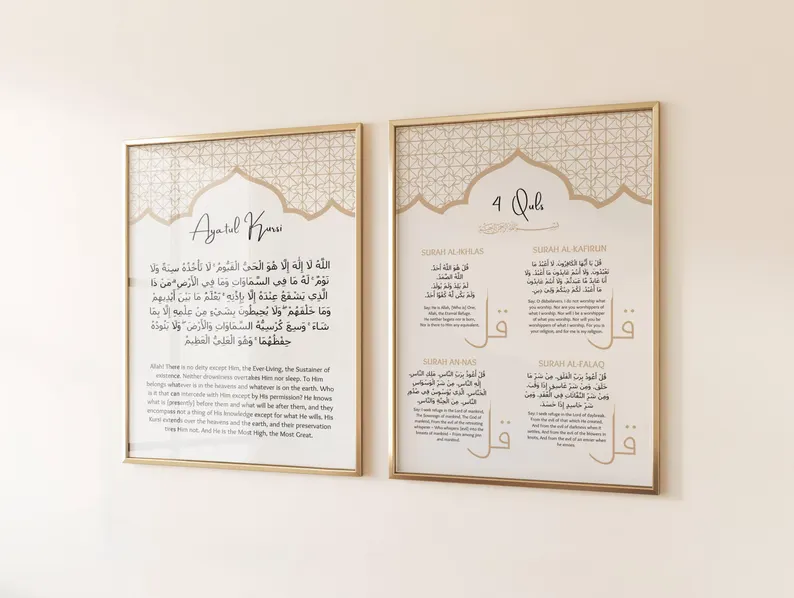 Ayatul Kursi
اللَّهُ لَا إِلَٰهَ إِلَّا هُوَ الْحَيُّ الْقَيُّومُ ۚ لَا تَأْخُذُهُ سِنَةٌ وَلَا
نَوْمٌ ۚ لَهُ مَا فِي السَّمَاوَاتِ وَمَا فِي الْأَرْضِ ۗ مَن ذَا
الَّذِي يَشْفَعُ عِندَهُ إِلَّا بِإِذْنِهِ ۚ يَعْلَمُ مَا بَيْنَ أَيْدِيهِمْ
وَمَا خَلْفَهُمْ ۖ وَلَا يُحِيطُونَ بِشَيْءٍ مِّنْ عِلْمِهِ إِلَّا بِمَا
شَاءَ ۚ وَسِعَ كُرْسِيُّهُ السَّمَاوَاتِ وَالْأَرْضَ ۖ وَلَا يَئُودُهُ
حِفْظُهُمَا ۚ وَهُوَ الْعَلِيُّ الْعَظِيمُ
Allah! There is no deity except Him, the Ever-Living, the Sustainer of
existence. Neither drowsiness overtakes Him nor sleep. To Him
belongs whatever is in the heavens and whatever is on the earth. Who
is it that can intercede with Him except by His permission? He knows
what is (presently) before them and what will be after them, and they
encompass not a thing of His knowledge except for what He wills. His
Kursi extends over the heavens and the earth, and their preservation
tires Him not. And He is the Most High, the Most Great.
4 Quls
SURAH AL-IKHLAS
قُلْ هُوَ اللَّهُ أَحَدٌ.
اللَّهُ الصَّمَدُ.
لَمْ يَلِدْ وَلَمْ يُولَدْ.
وَلَمْ يَكُن لَّهُ كُفُوًا أَحَدٌ.
Say: He is Allah, (Who is) One.
Allah, the Eternal Refuge.
He neither begets nor is born,
Nor is there to Him any equivalent.
قل
SURAH AL-KAFIRUN
قُلْ يَا أَيُّهَا الْكَافِرُونَ. لَا أَعْبُدُ مَا
تَعْبُدُونَ. وَلَا أَنتُمْ عَابِدُونَ مَا أَعْبُدُ. وَلَا
أَنَا عَابِدٌ مَّا عَبَدتُّمْ. وَلَا أَنتُمْ عَابِدُونَ
مَا أَعْبُدُ. لَكُمْ دِينُكُمْ وَلِيَ دِينِ.
Say: O disbelievers, I do not worship what
you worship. Nor are you worshippers of
what I worship. Nor will I be a worshipper
of what you worship. Nor will you be
worshippers of what I worship. For you is
your religion, and for me is my religion.
قل
SURAH AN-NAS
قُلْ أَعُوذُ بِرَبِّ النَّاسِ. مَلِكِ النَّاسِ.
إِلَٰهِ النَّاسِ. مِن شَرِّ الْوَسْوَاسِ
الْخَنَّاسِ. الَّذِي يُوَسْوِسُ فِي صُدُورِ
النَّاسِ. مِنَ الْجِنَّةِ وَالنَّاسِ.
Say: I seek refuge in the Lord of mankind,
The Sovereign of mankind, The God of
mankind, From the evil of the retreating
whisperer – Who whispers (evil) into the
breasts of mankind – From among jinn
and mankind.
قل
SURAH AL-FALAQ
قُلْ أَعُوذُ بِرَبِّ الْفَلَقِ. مِن شَرِّ مَا
خَلَقَ. وَمِن شَرِّ غَاسِقٍ إِذَا وَقَبَ.
وَمِن شَرِّ النَّفَّاثَاتِ فِي الْعُقَدِ. وَمِن
شَرِّ حَاسِدٍ إِذَا حَسَدَ.
Say: I seek refuge in the Lord of daybreak,
From the evil of that which He created,
And from the evil of darkness when it
settles, And from the evil of the blowers in
knots, And from the evil of an envier when
he envies.
قل